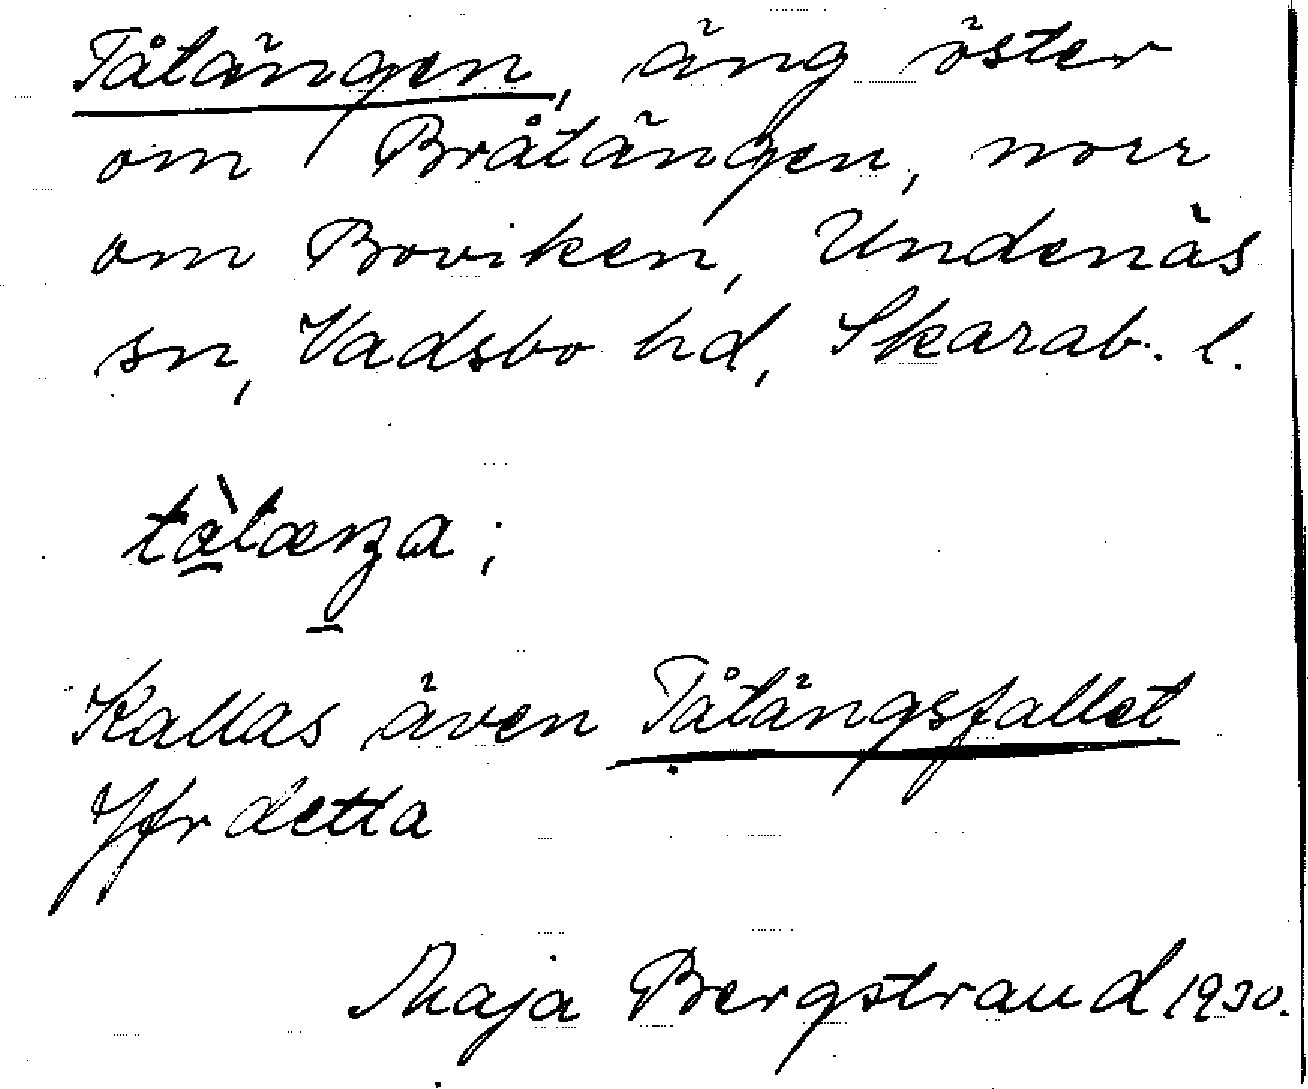 Tåtängen, äng öster
om Bråtängen, norr
om Boviken, Undenäs
sn, Vadsbo hd, Skarab. l.
tàtæŋa;
Kallas även Tåtängsfallet
Jfr detta
Maja Bergstrand 1930.